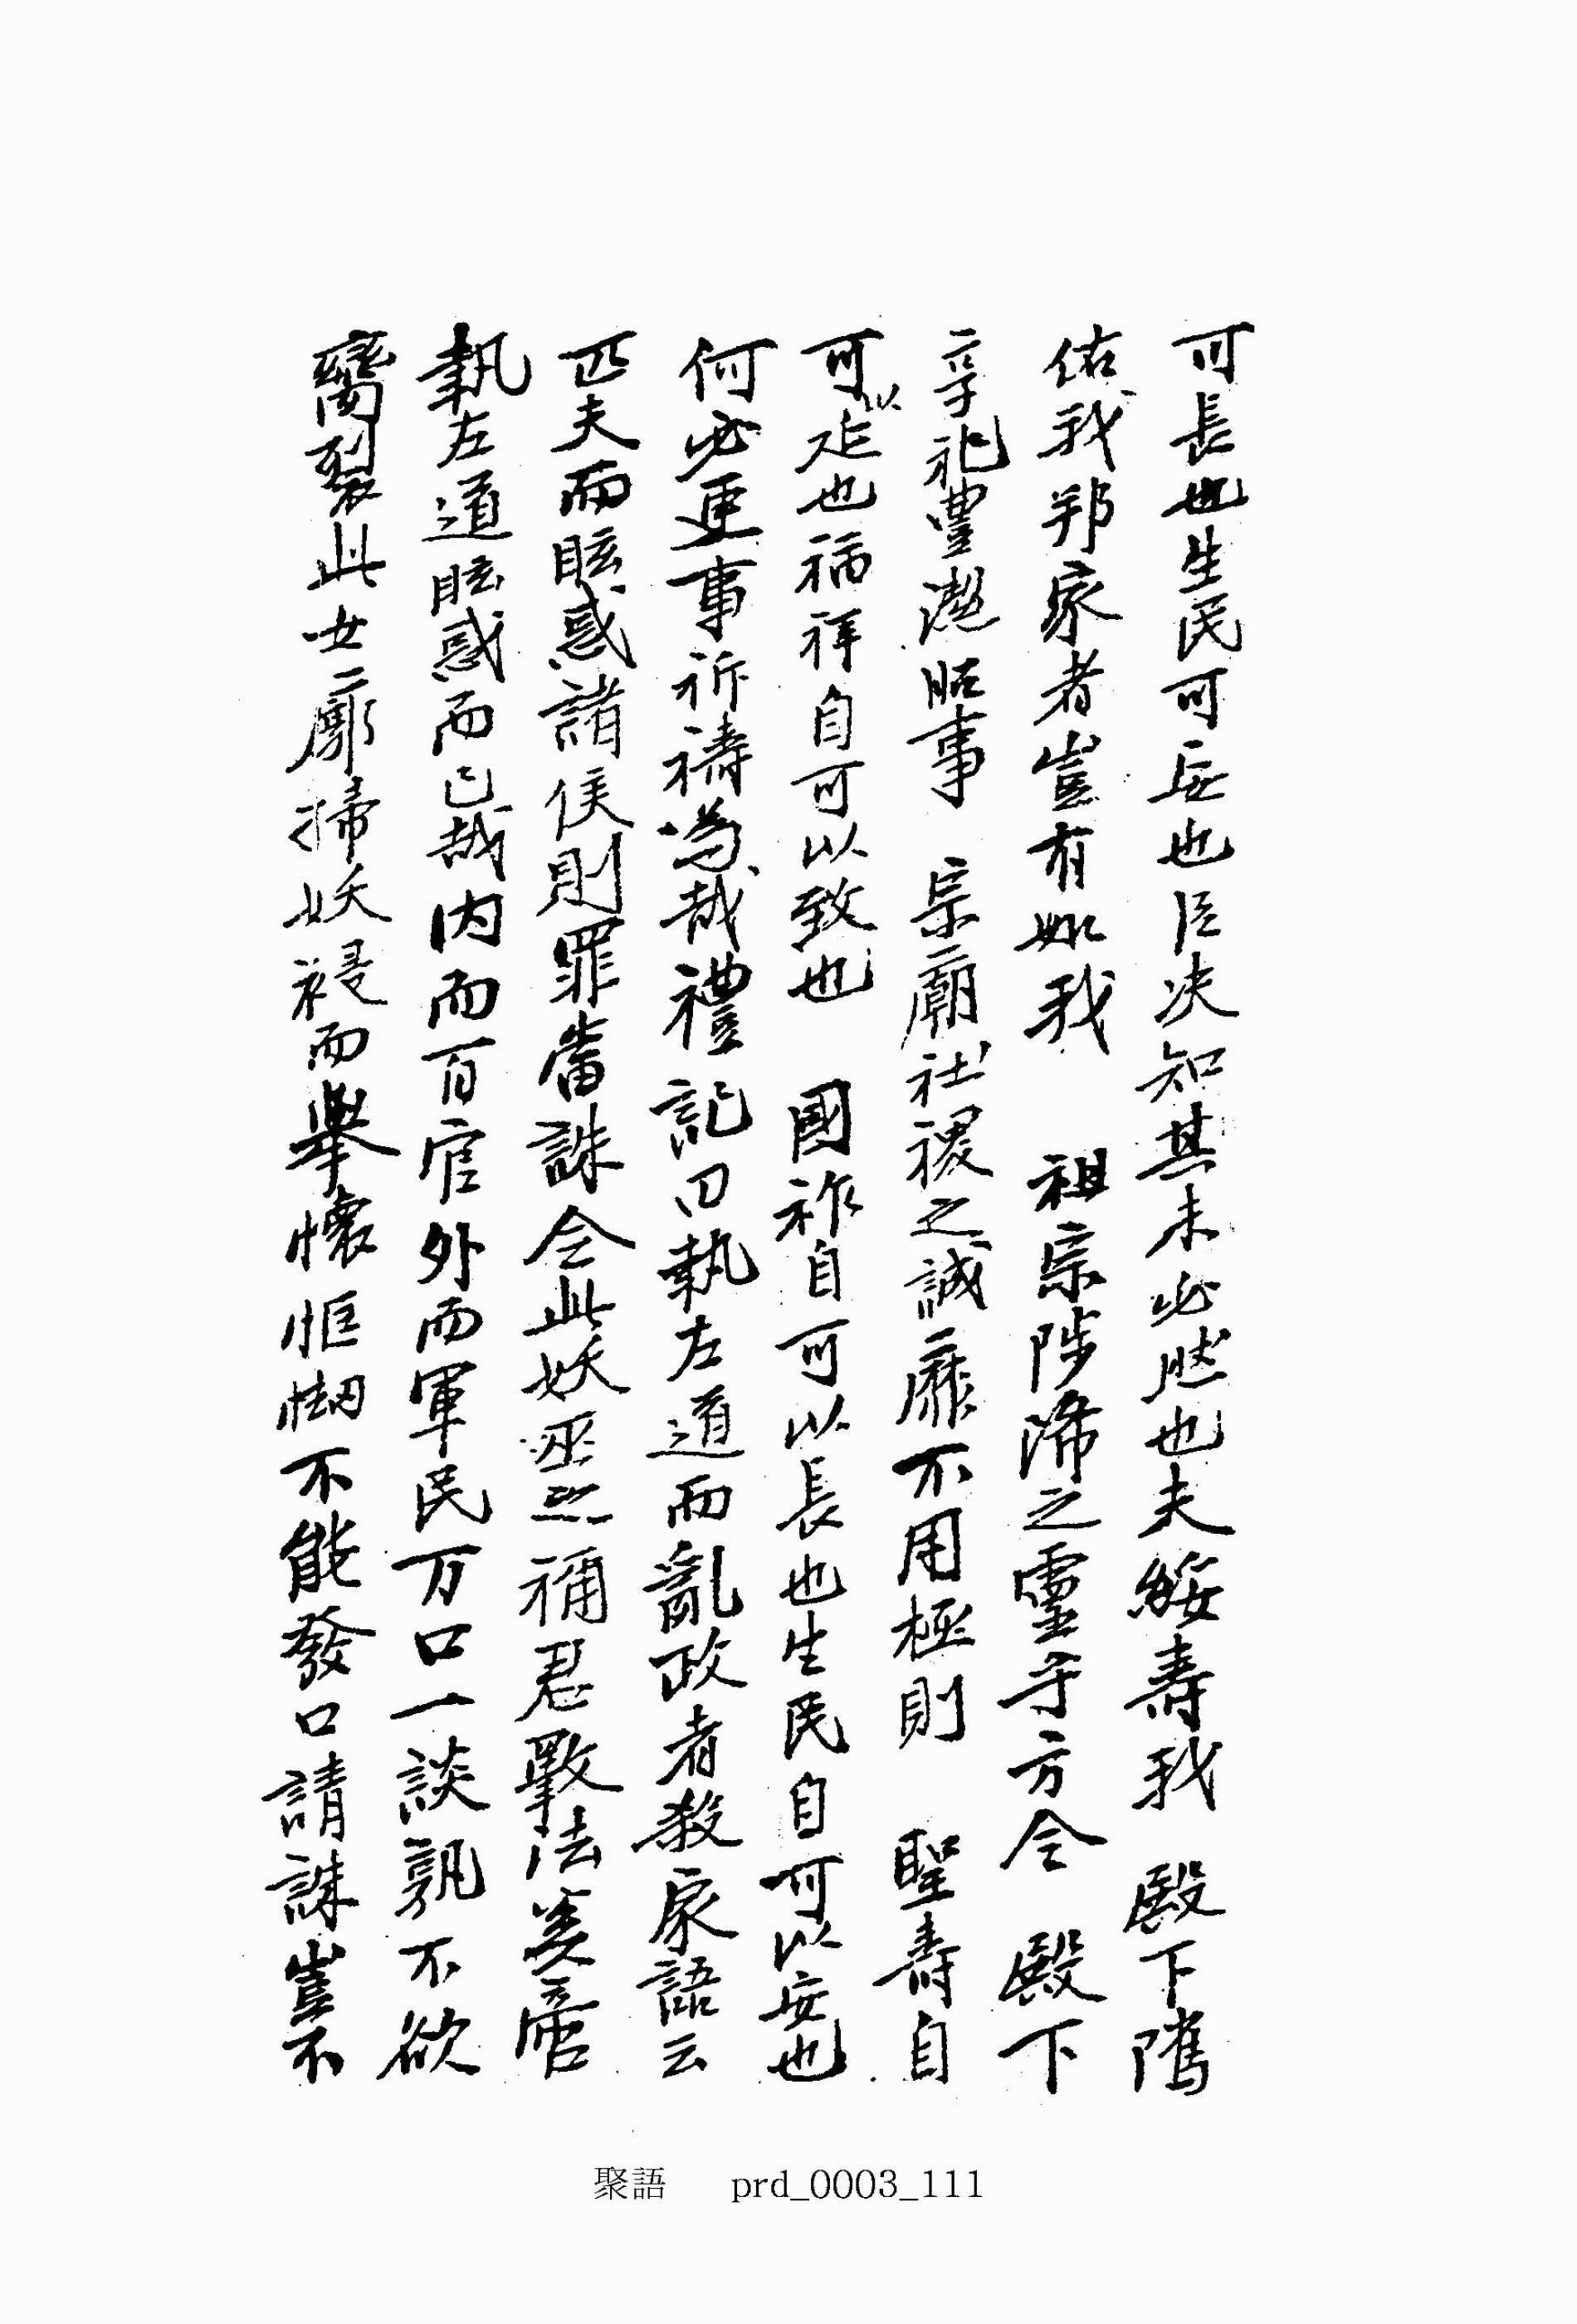 可長也生民可㝎也臣决知其未必然也夫綏壽我 殿下隲
佑我邦家者豈有如我 祖宗陟降之靈乎方今 殿下
享祀豊潔昭事 宗廟社稷之誠靡不用極則 聖壽自
可以延也福祥自可以致也 國祚自可以長也生民自可以安也
何必更事祈禱爲哉禮記曰執左道而亂政者殺家語云
匹夫而眩惑諸侯則罪當誅今此妖巫之禍君斁法奚啻
執左道眩惑而已哉内而百官外而軍民万口一談孰不欲
臠裂此女廓掃妖祲而舉懷恇㤼不能發口請誅豈不
聚語 prd_0003_111